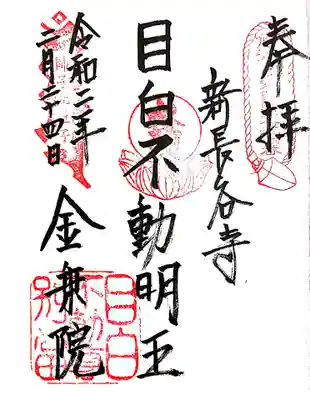 奉拝
新長谷寺
目白不動明王
令和二年
二月二十四日
金乗院